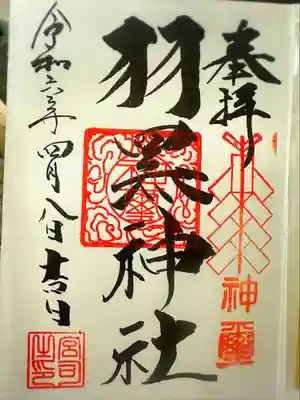 奉拝
羽黒神社
令和六年四月八日吉日
神璽
宮司之印